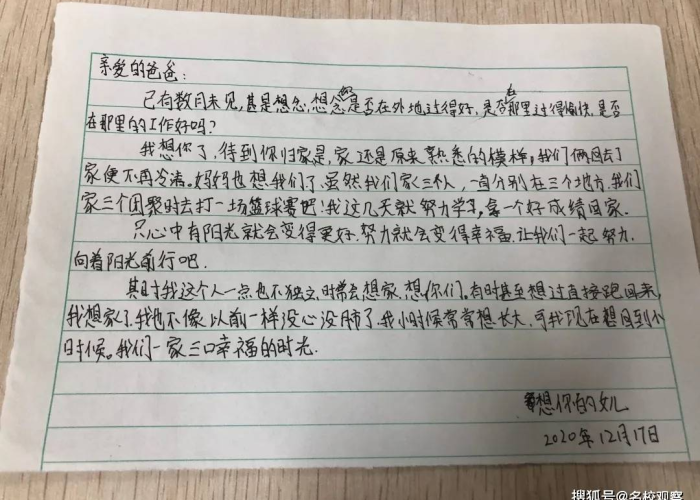 亲爱的爸爸:
已有数月未见,甚是想念,想念您是否在外地过得好,是否在那里过得愉快,是否
在那里的工作好吗?
我想你了,待到你归家是,家还是原来熟悉的模样,我们俩回去了
家便不再冷清。妈妈也想我们了,虽然我们家三个人,一直分别在三个地方,我们
家三个团聚时去打一场篮球赛吧!我这几天就努力学习,拿一个好成绩回家.
只心中有阳光就会变得更好.努力就会变得幸福.让我们一起努力.
向着阳光前行吧.
其时我这个人一点也不独立,时常会想家.想你们,有时甚至想过直接跑回来,
我想家了,我也不像以前一样没心没肺了,我小时候常常想长大,可我现在想回到小
时候。我们一家三口幸福的时光.
想你的女儿
2020年12月17日
搜狐号@名校观察